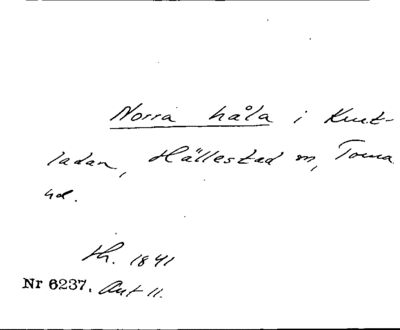 Norra håla i Knut-
ladan, Hällestad sn, Torna
hd.
th. 1841
Nr 6237. Avt 11.